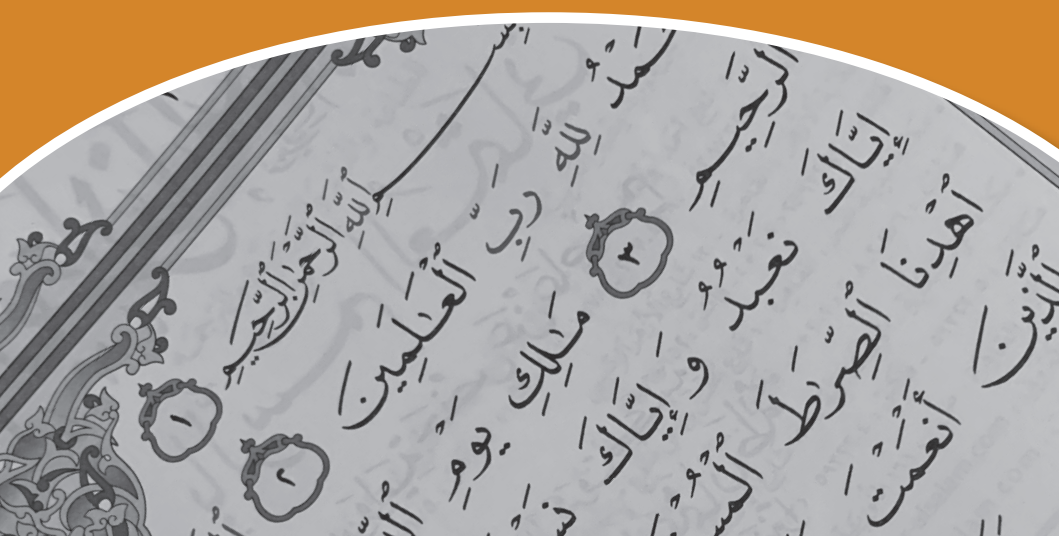 بِسْمِ ٱللَّهِ ٱلرَّحْمَـٰنِ ٱلرَّحِيمِ ١
مْدُ لِلَّهِ رَبِّ ٱلْعَـٰلَمِينَ ٢
ٱلرَّحِيمِ ٣ مَـٰلِكِ يَوْمِ
إِيَّاكَ نَعْبُدُ وَإِيَّاكَ
ٱهْدِنَا ٱلصِّرَٰطَ ٱلْمُسْ
ٱلَّذِينَ أَنْعَمْتَ